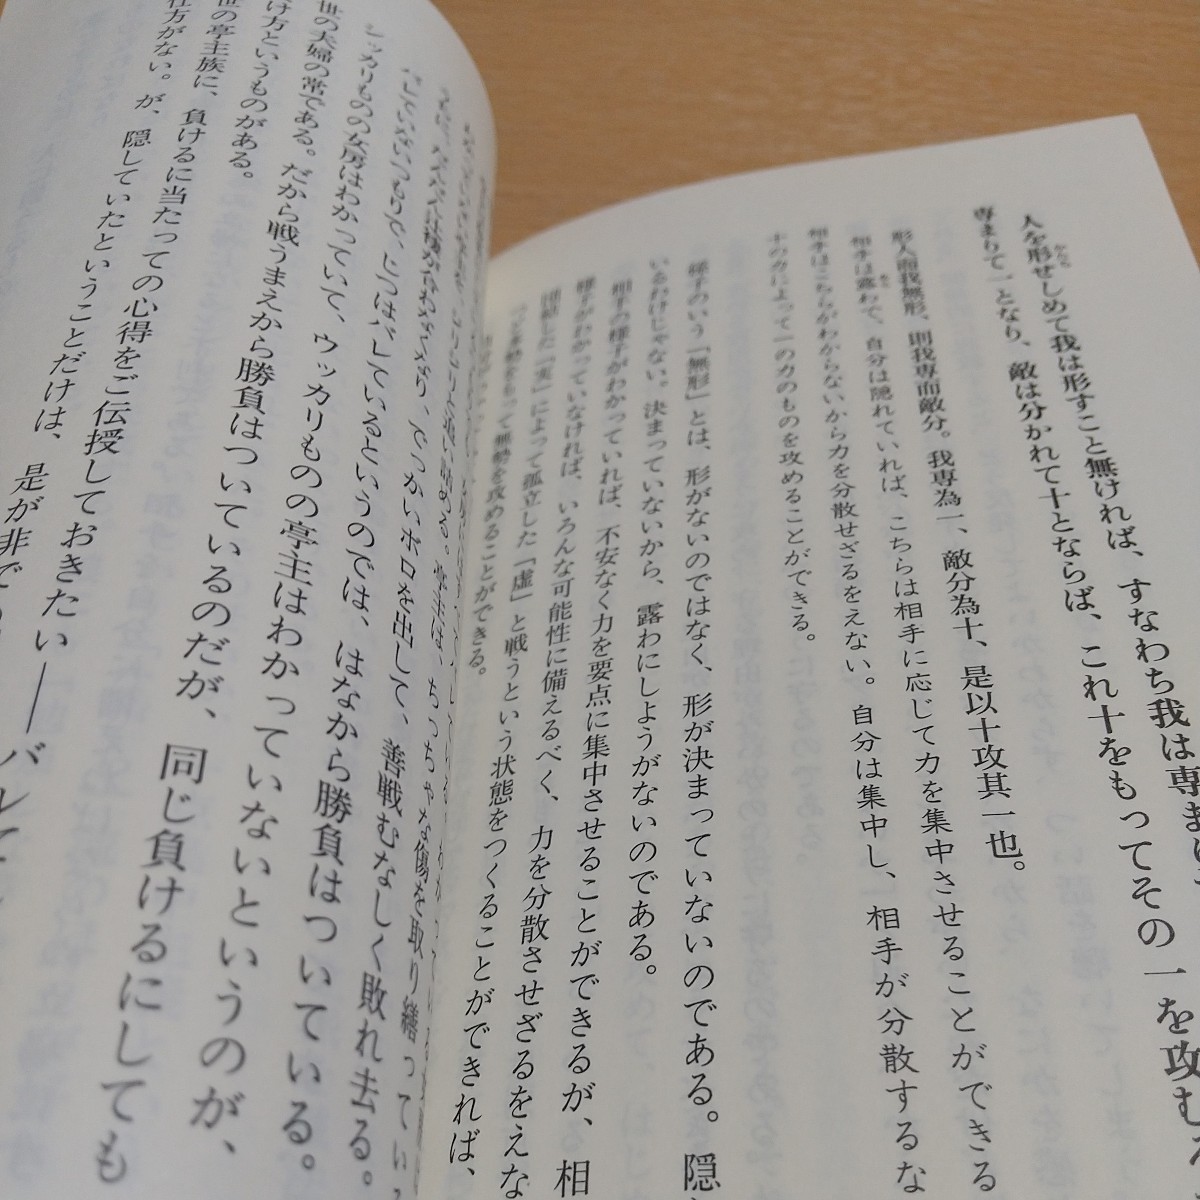 人を形せしめて我は形すこと無ければ、すなわち我は専まり
専まりて一となり、敵は分かれて十とならば、これ十をもってその一を攻む
形人而我無形、則我専而敵分。我専為一、敵分為十、是以十攻其一也。
相手は露わで、自分は隠れていれば、こちらは相手に応じて力を集中させることができる
相手はこちらがわからないから力を分散せざるをえない。自分は集中し、相手が分散するな
十の力によって一の力のものを攻めることができる。
様子のいう「無形」とは、形がないのではなく、形が決まっていないのである。隠
いるわけじゃない。決まっていないから、露わにしようがないのである。
相手の様子がわかっていれば、不安なく力を要点に集中させることができるが、相
様子がわかっていなければ、いろんな可能性に備えるべく、力を分散させざるをえな
団結した「実」によって孤立した「虚」と戦うという状態をつくることができれば、
をもって無勢を攻めることができる。
追い詰める。亭主は、ちっちゃな傷を取り繕ってい
でっかいボロを出して、善戦むなしく敗れ去る。
していないつもりで、じつはバレているというのでは、はなから勝負はついている。
シッカリものの女房はわかっていて、ウッカリものの亭主はわかっていないというのが、
世の夫婦の常である。だから戦うまえから勝負はついているのだが、同じ負けるにしても
け方というものがある。
世の亭主族に、負けるに当たっての心得をご伝授しておきたい――バレて
仕方がない。が、隠していたということだけは、是が非でも